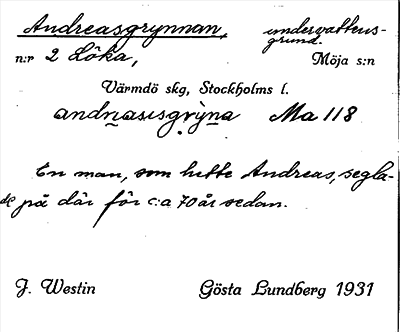 Andreasgrynnan, undervattens-
grund.
n:r 2 Löka, Möja s:n
Värmdö skg, Stockholms l.
andr̥asısgrỳna Ma 118
En man, som hette Andreas, segla-
de på där för c:a 70 år sedan.
J. Westin Gösta Lundberg 1931